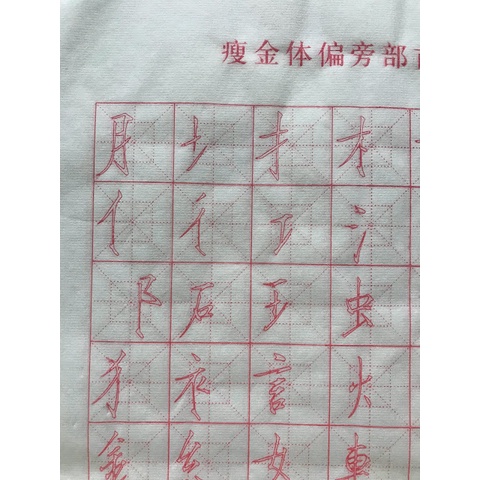 瘦金体偏旁部
月 土 扌 木
亻 彳 工 氵
阝 石 王 虫
礻 言 火
金 女 車